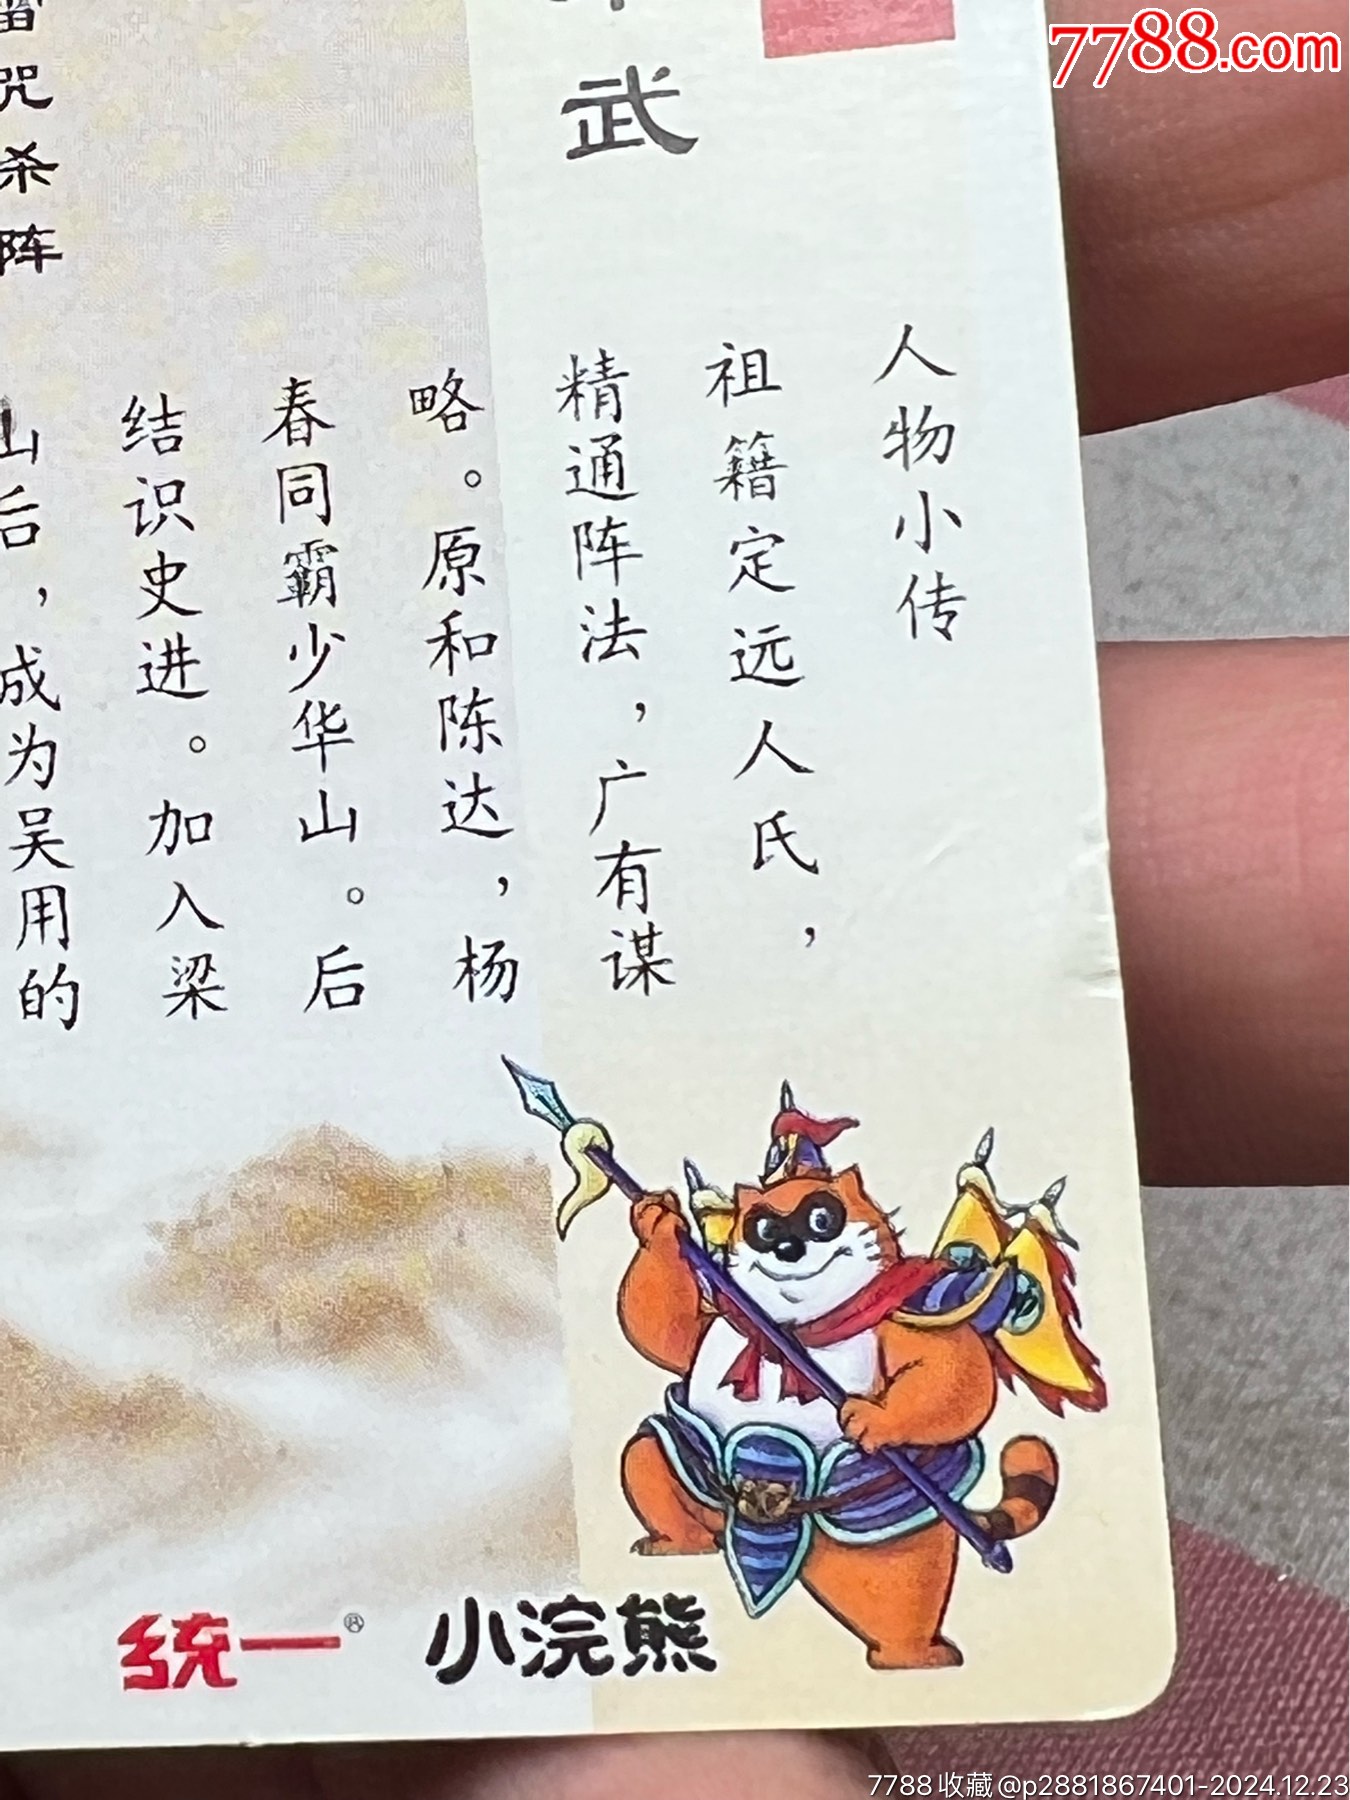 7788.com
武
人物小传
祖籍定远人氏，
精通阵法，广有谋
略。原和陈达，杨
春同霸少华山。后
结识史进。加入梁
山后，成为吴用的
咒杀阵
统一®
小浣熊
7788收藏@p2881867401-2024.12.23